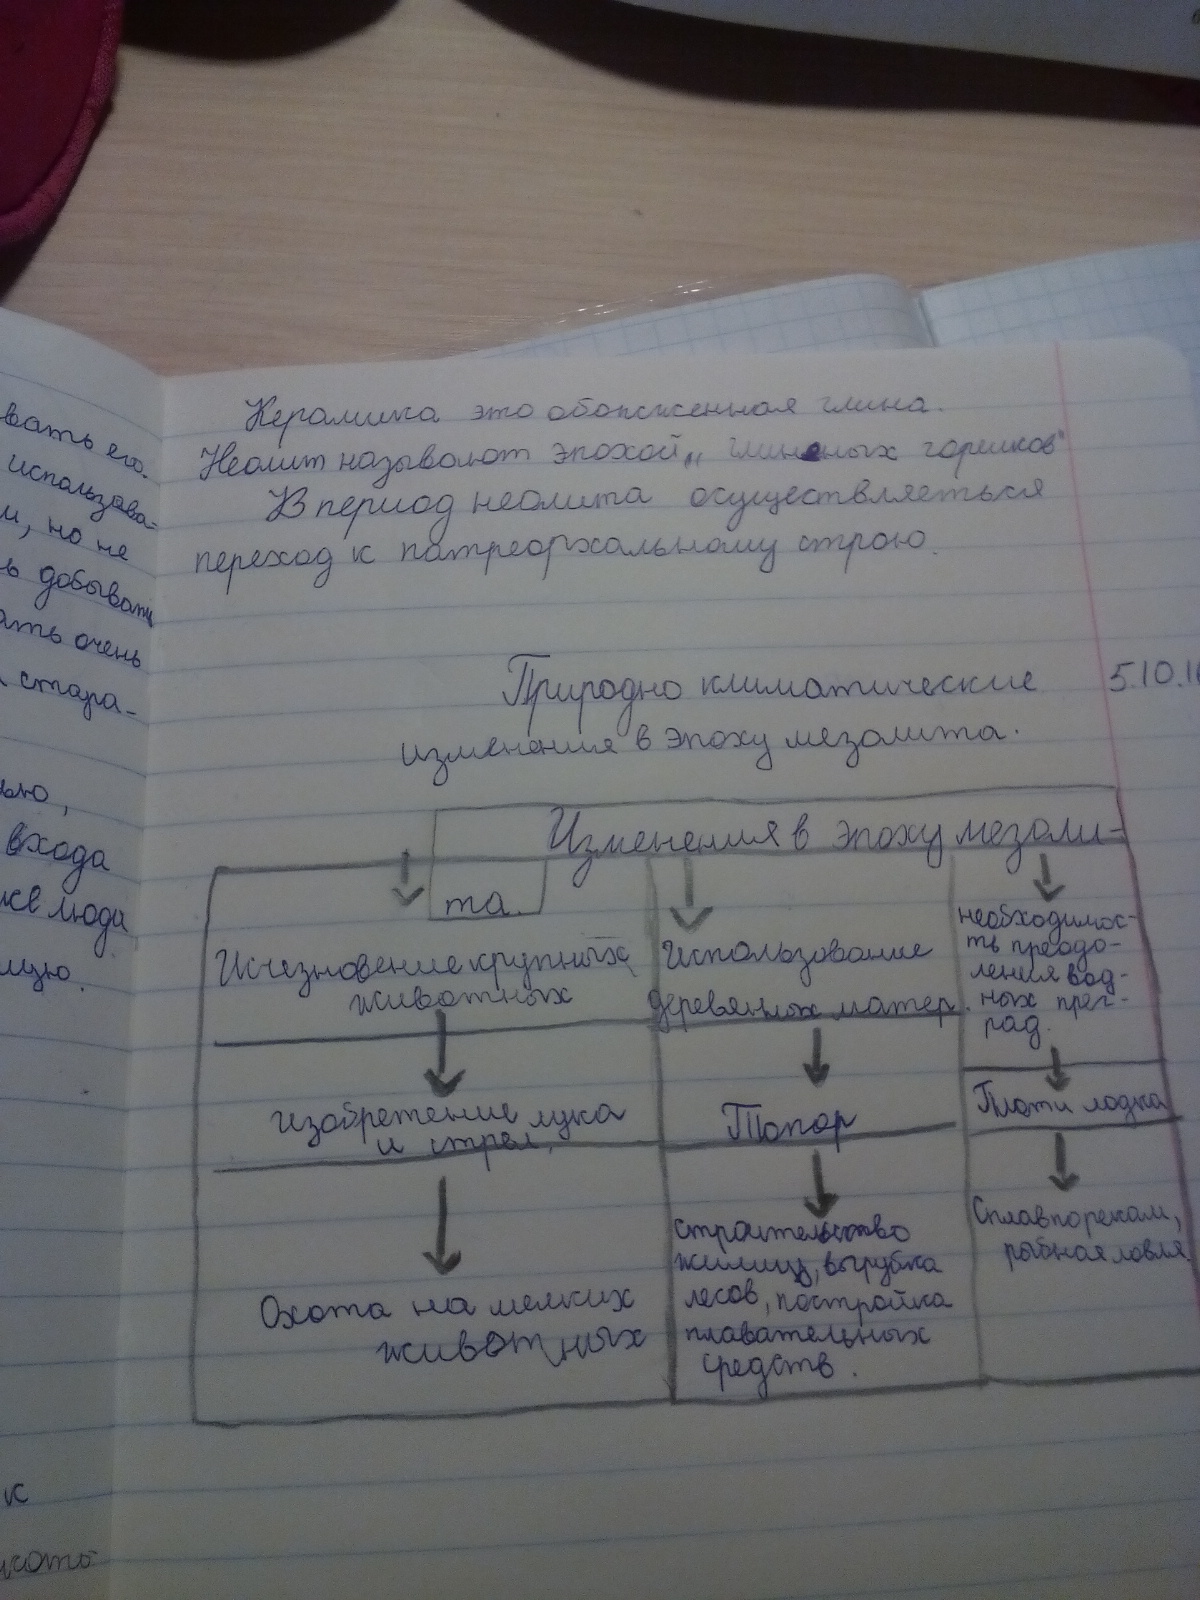 вать его.
использова-
м, но не
ь добывать
ать очень
стара-
ью,
входа
же люди
мую.
к
Керамика это обожженная глина.
Неолит называют эпохой „ глиняных горшков"
В период неолита осуществляеться
переход к патреархальному строю.
Природно климатические
5.10.16
изменения в эпоху мезолита.
Изменения в эпоху мезоли-
та.
Исчезновение крупных
животных
изобретение лука
и стрел.
Охота на мелких
животных
Использование
деревянных матер.
Топор
строительство
жилищ, вырубка
лесов, постройка
плавательных
средств.
необходимос-
ть преодо-
ления вод-
ных прег-
рад.
Плоти лодка
Сплав по рекам,
рыбная ловля.